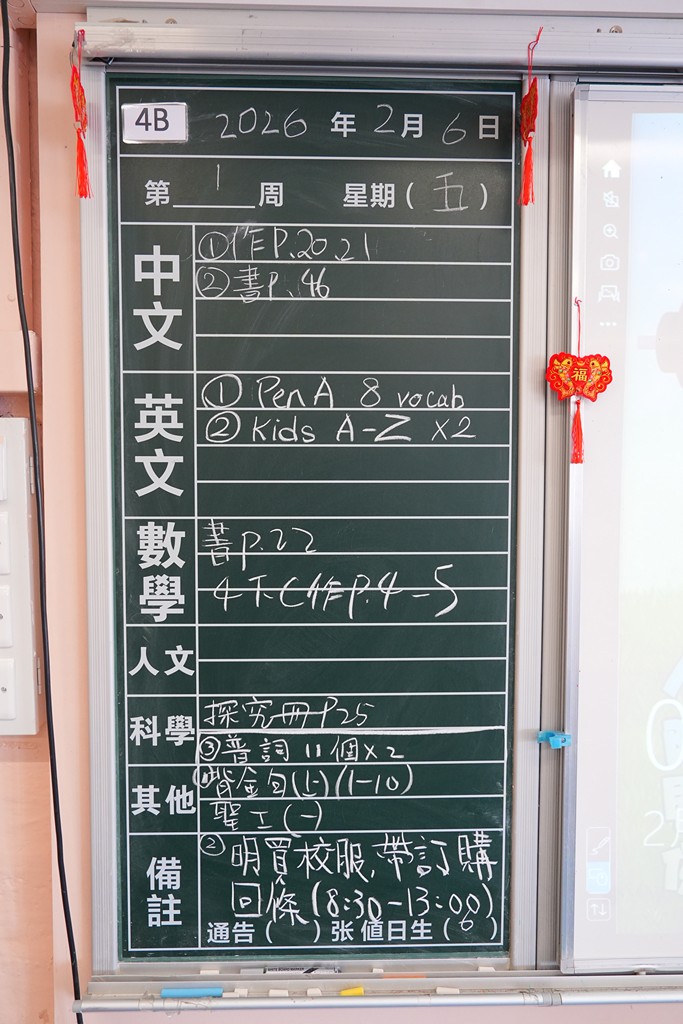 4B 2026 年 2 月 6 日
第 1 周 星期 ( 五 )
中文
①作P.20.21
②書P.46
英文
① Pen A 8 vocab
② Kids A-Z x2
數學
書p.22
4下C作P.4-5
人文
科學
探究冊P25
③普詞11個x2
其他
背金句(上)(1-10)
聖工(一)
備註
② 明買校服,帶訂購
回條(8:30-13:00)
通告 ( ) 张 值日生 ( 6 )
福